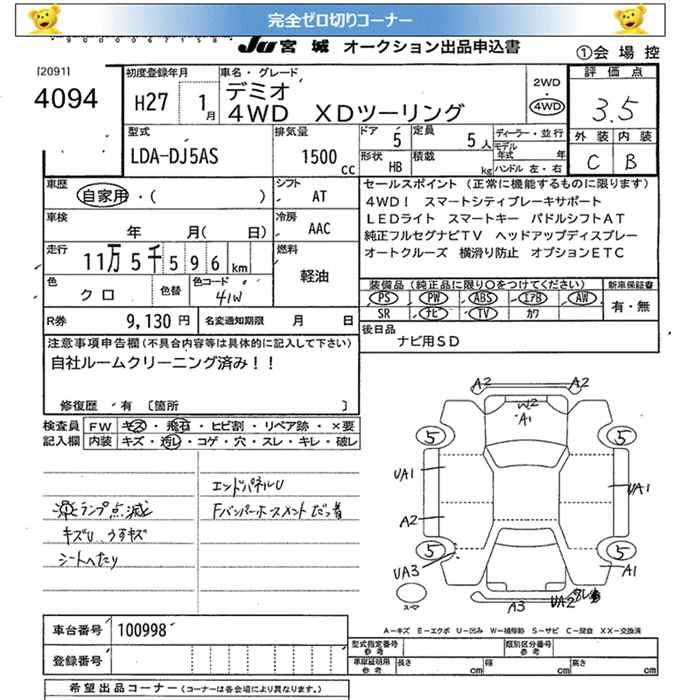 完全ゼロ切りコーナー
JU 宮城 オークション出品申込書
①会場控
[2091]
4094
初度登録年月
H27 1月
車名・グレード
デミオ
4WD XDツーリング
2WD
・
4WD
評価点
3.5
外装 内装
C B
型式
LDA-DJ5AS
排気量
1500cc
ドア 5
定員 5人
形状 HB
積載 kg
ディーラー・並行
モデル年式 年
ハンドル 左・右
車歴
自家用・( )
シフト
AT
車検
年 月(日)
冷房
AAC
走行
11万5千596km
燃料
軽油
色
クロ
色替
色コード
41W
R券 9,130円
名変通知期限 月 日
セールスポイント(正常に機能するものに限ります)
4WD! スマートシティブレーキサポート
LEDライト スマートキー パドルシフトAT
純正フルセグナビTV ヘッドアップディスプレー
オートクルーズ 横滑り防止 オプションETC
装備品(純正品に限り○をつけてください)
PS PW ABS エアB AW
SR ナビ TV カワ
新車保証書
有・無
後日品
ナビ用SD
注意事項申告欄(不具合内容等は具体的に記入して下さい)
自社ルームクリーニング済み!!
修復歴・有〔箇所 〕
検査員記入欄
FW キズ・飛石・ヒビ割・リペア跡・×要
内装 キズ・汚レ・コゲ・穴・スレ・キレ・破レ
ランプ点滅
キズU、うすキズ
シートへたり
エンドパネルU
Fバンパーホースメント
A2 A2
W2
A1
5 5
UA1 UA1
A2
5 5
UA3 A1
スペア
A3 UA2
A−キズ E−エクボ U−凹み W−補修跡 S−サビ C−腐食 XX−交換済
車台番号 100998
登録番号
型式指定番号 参考
類別区分番号 参考
車庫証明用 参考
長さ cm 幅 cm 高さ cm
希望出品コーナー(コーナーは各会場により異なります。)